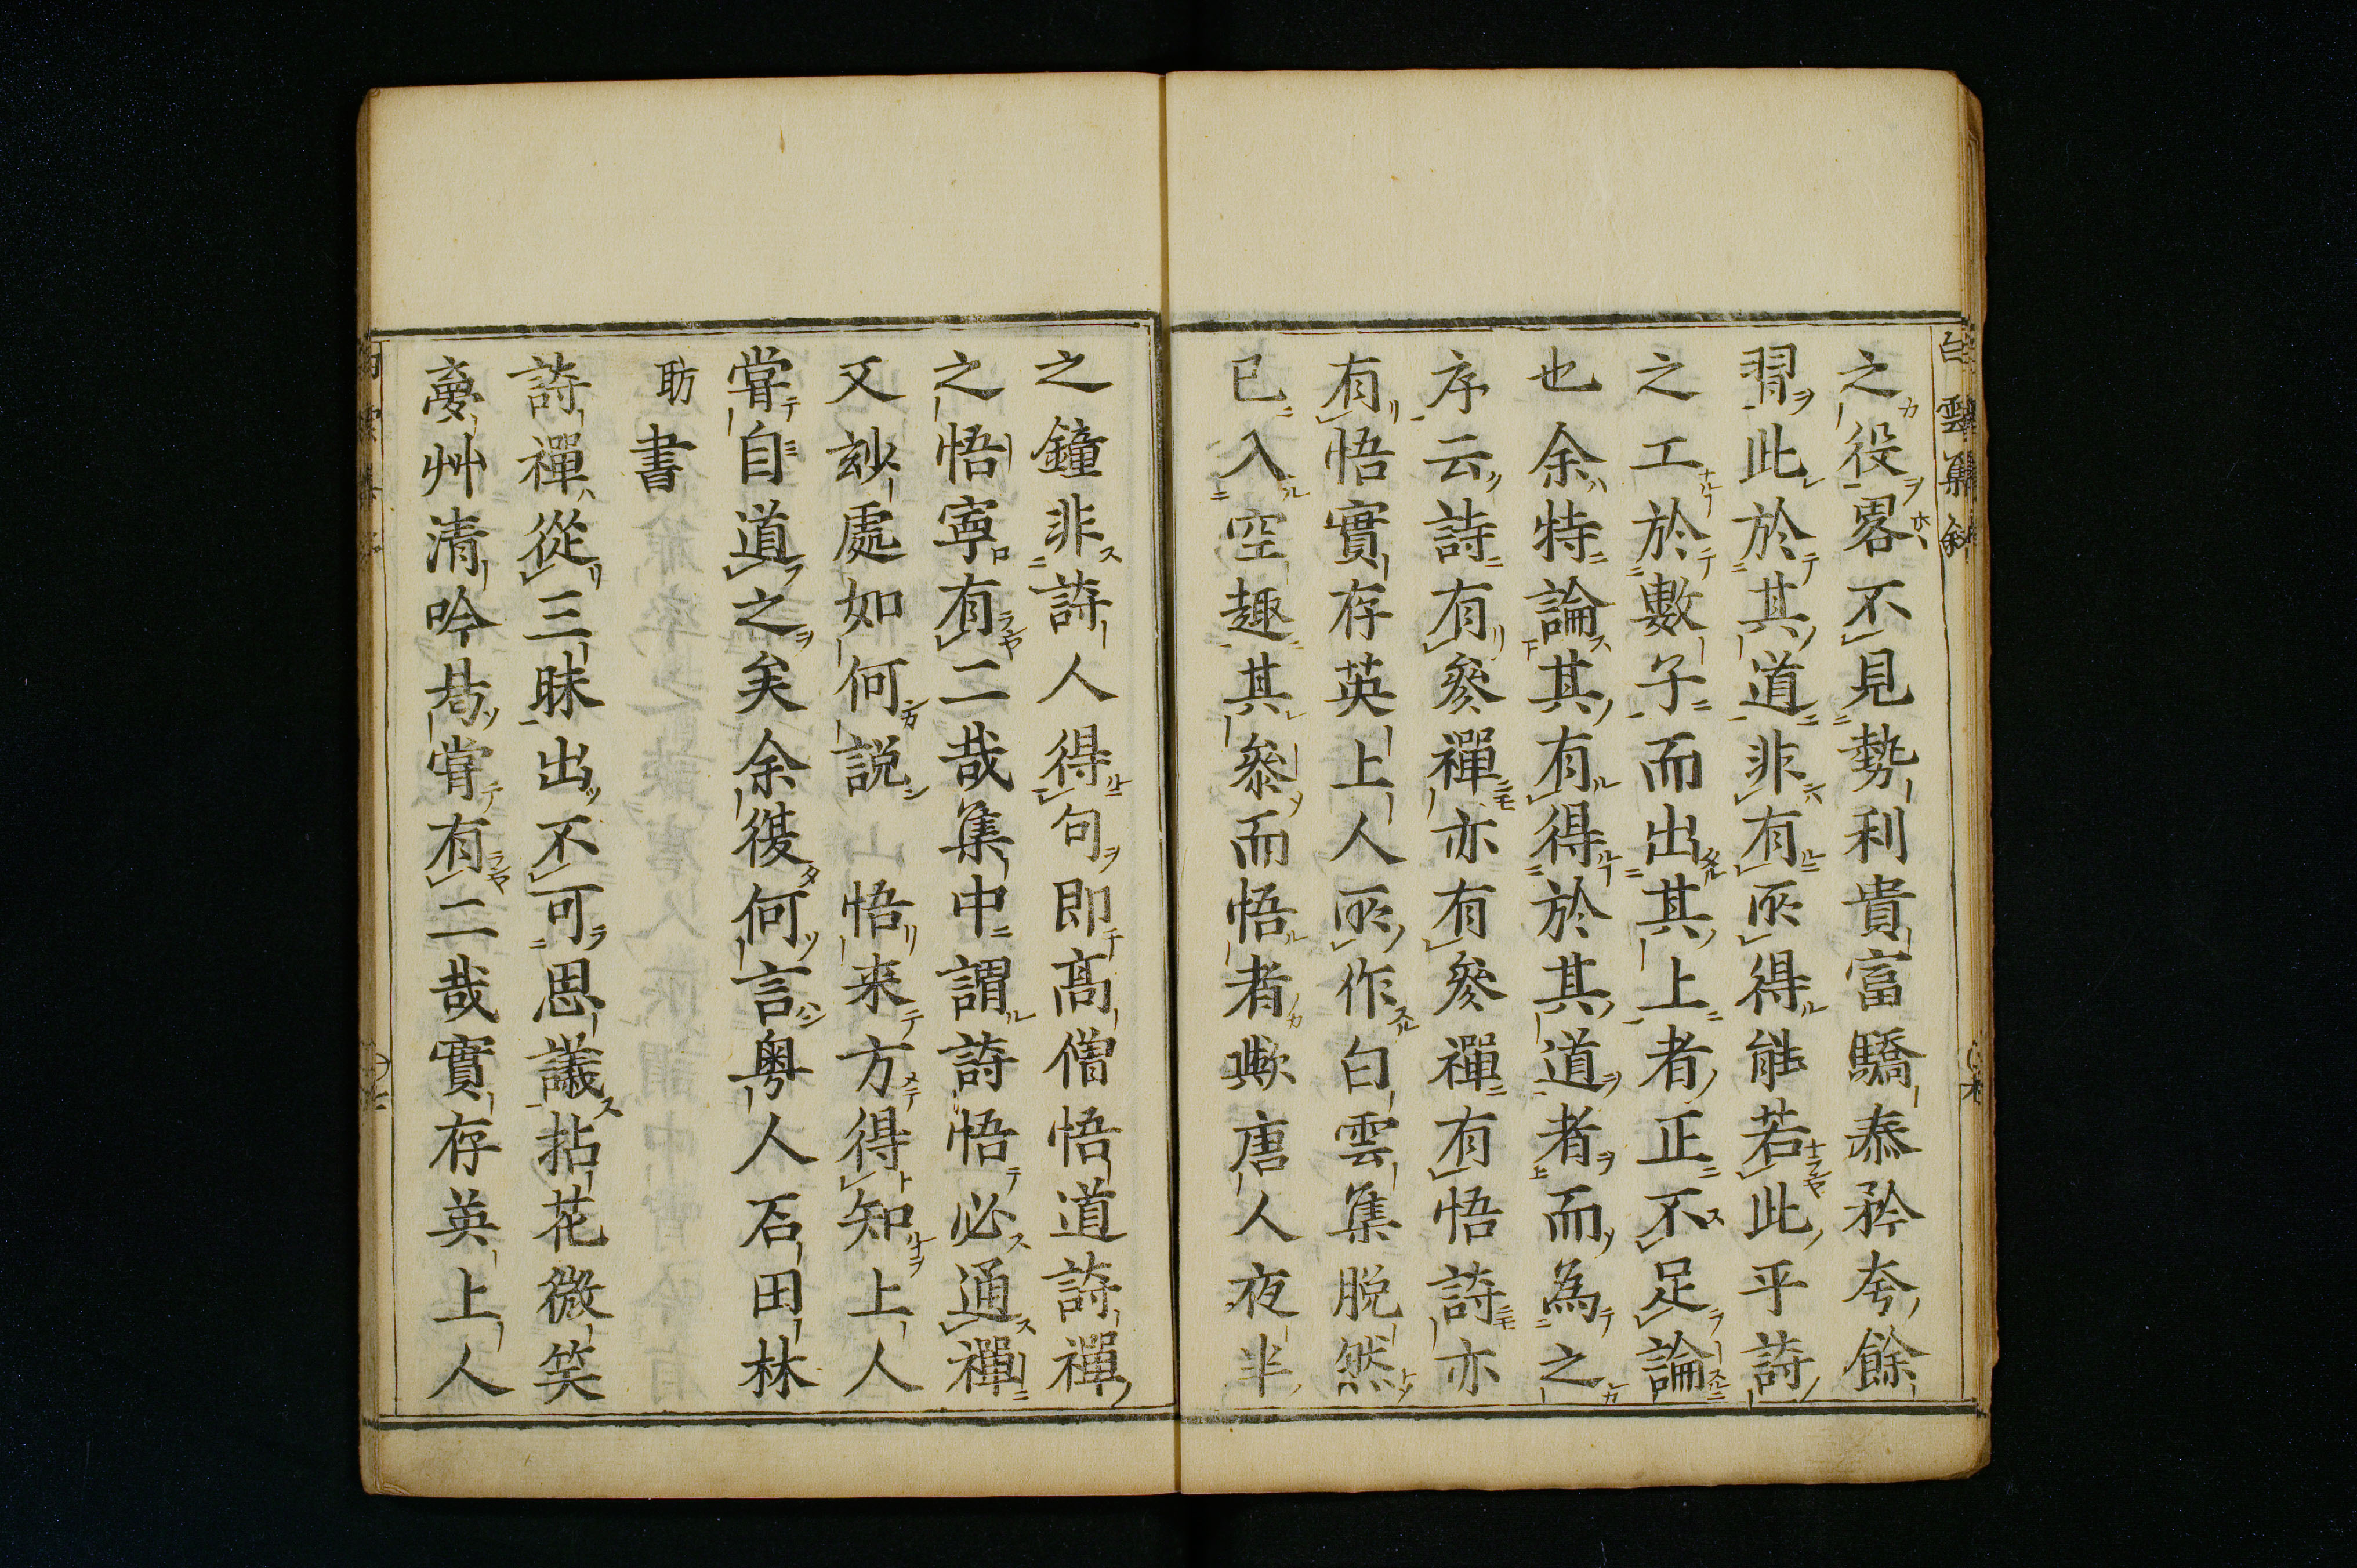 白雲集敘
之役畧不見勢利貴富驕泰矜夸餘
習此於其道非有所得能若此乎詩
之工於數子而出其上者正不足論
也余特論其有得於其道者而為之
序云詩有參禪亦有參禪有悟詩亦
有悟實存英上人所作白雲集脫然
已入空趣其參而悟者歟唐人夜半
之鐘非詩人得句即高僧悟道詩禪
之悟寧有二哉集中謂詩悟必通禪
又玅處如何說山悟来方得知上人
甞自道之矣余復何言粤人石田林
昉書
詩禪從三昧出不可思議拈花微笑
夢艸清吟曷甞有二哉實存英上人